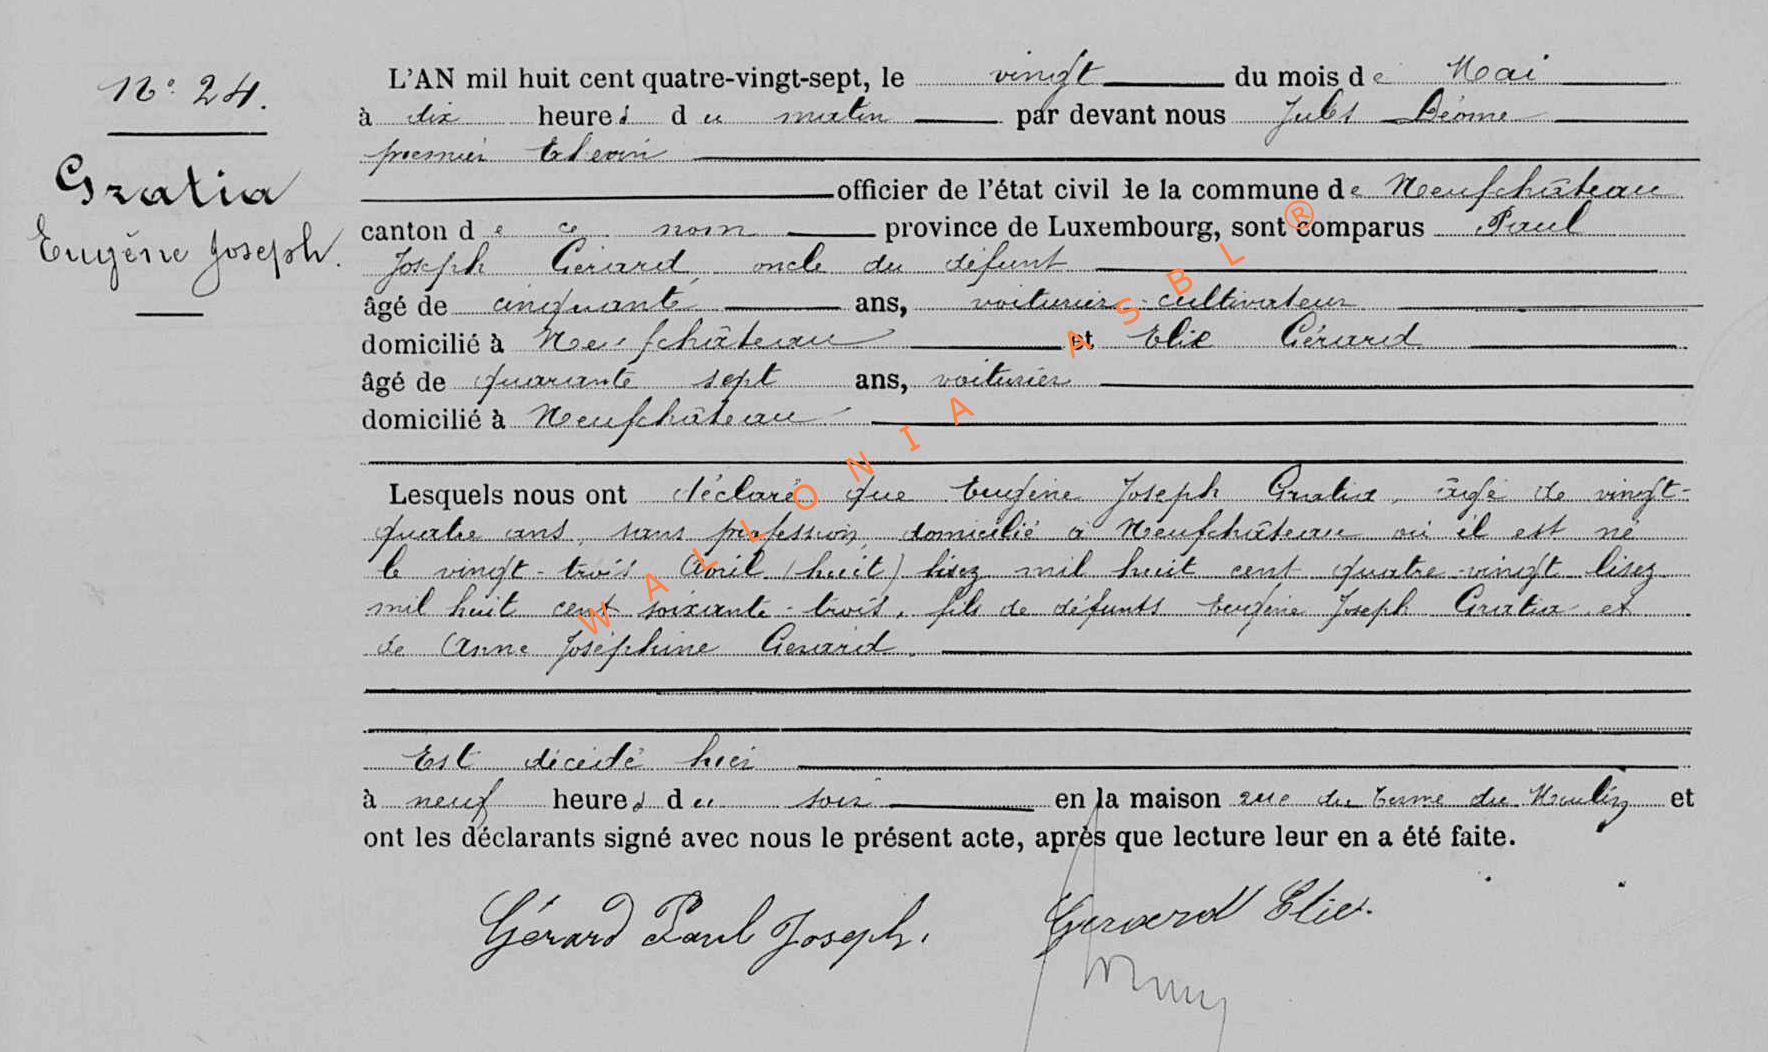 N° 24.
Gratia
Eugène Joseph.
L'AN mil huit cent quatre-vingt-sept, le vingt du mois de Mai
à dix heures du matin par devant nous Jules Déome
premier Echevin
officier de l'état civil de la commune de Neufchâteau
canton de ce nom province de Luxembourg, sont comparus Paul
Joseph Gérard, oncle du défunt
âgé de cinquante ans, voiturier-cultivateur
domicilié à Neufchâteau et Elie Gérard
âgé de quarante sept ans, voiturier
domicilié à Neufchâteau
Lesquels nous ont déclaré que Eugène Joseph Gratia, âgé de vingt-
quatre ans, sans profession, domicilié à Neufchâteau où il est né
le vingt-trois Avril (huit) lisez mil huit cent quatre-vingt lisez
mil huit cent soixante-trois, fils de défunts Eugène Joseph Gratia et
de Anne Joséphine Gérard.
Est décédé hier
à neuf heures du soir en la maison rue du Terme du Moulin et
ont les déclarants signé avec nous le présent acte, après que lecture leur en a été faite.
Gérard Paul Joseph. Gerard Elie.
WALLONIA ASBL ®